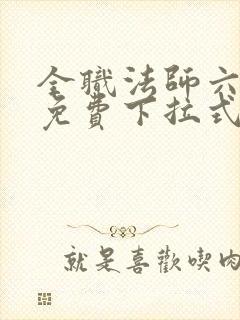 全職法師六
免費下拉式
就是喜歡喫肉